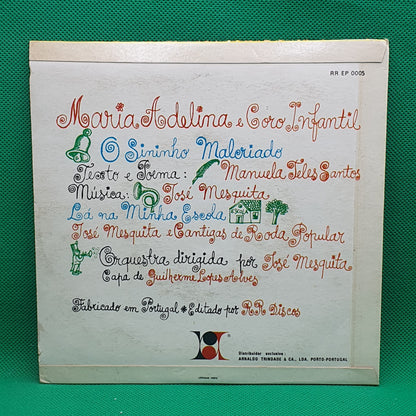 RR EP 0005
Maria Adelina e Coro Infantil
O Sininho Malcriado
Texto e Poema: Manuela Teles Santos
Música: José Mesquita
Lá na Minha Escola
José Mesquita e Cantigas de Roda Popular
Orquestra dirigida por José Mesquita
Capa de Guilherme Lopes Alves
Fabricado em Portugal • Editado por RR Discos
Distribuidor exclusivo:
ARNALDO TRINDADE & CA., LDA. PORTO-PORTUGAL